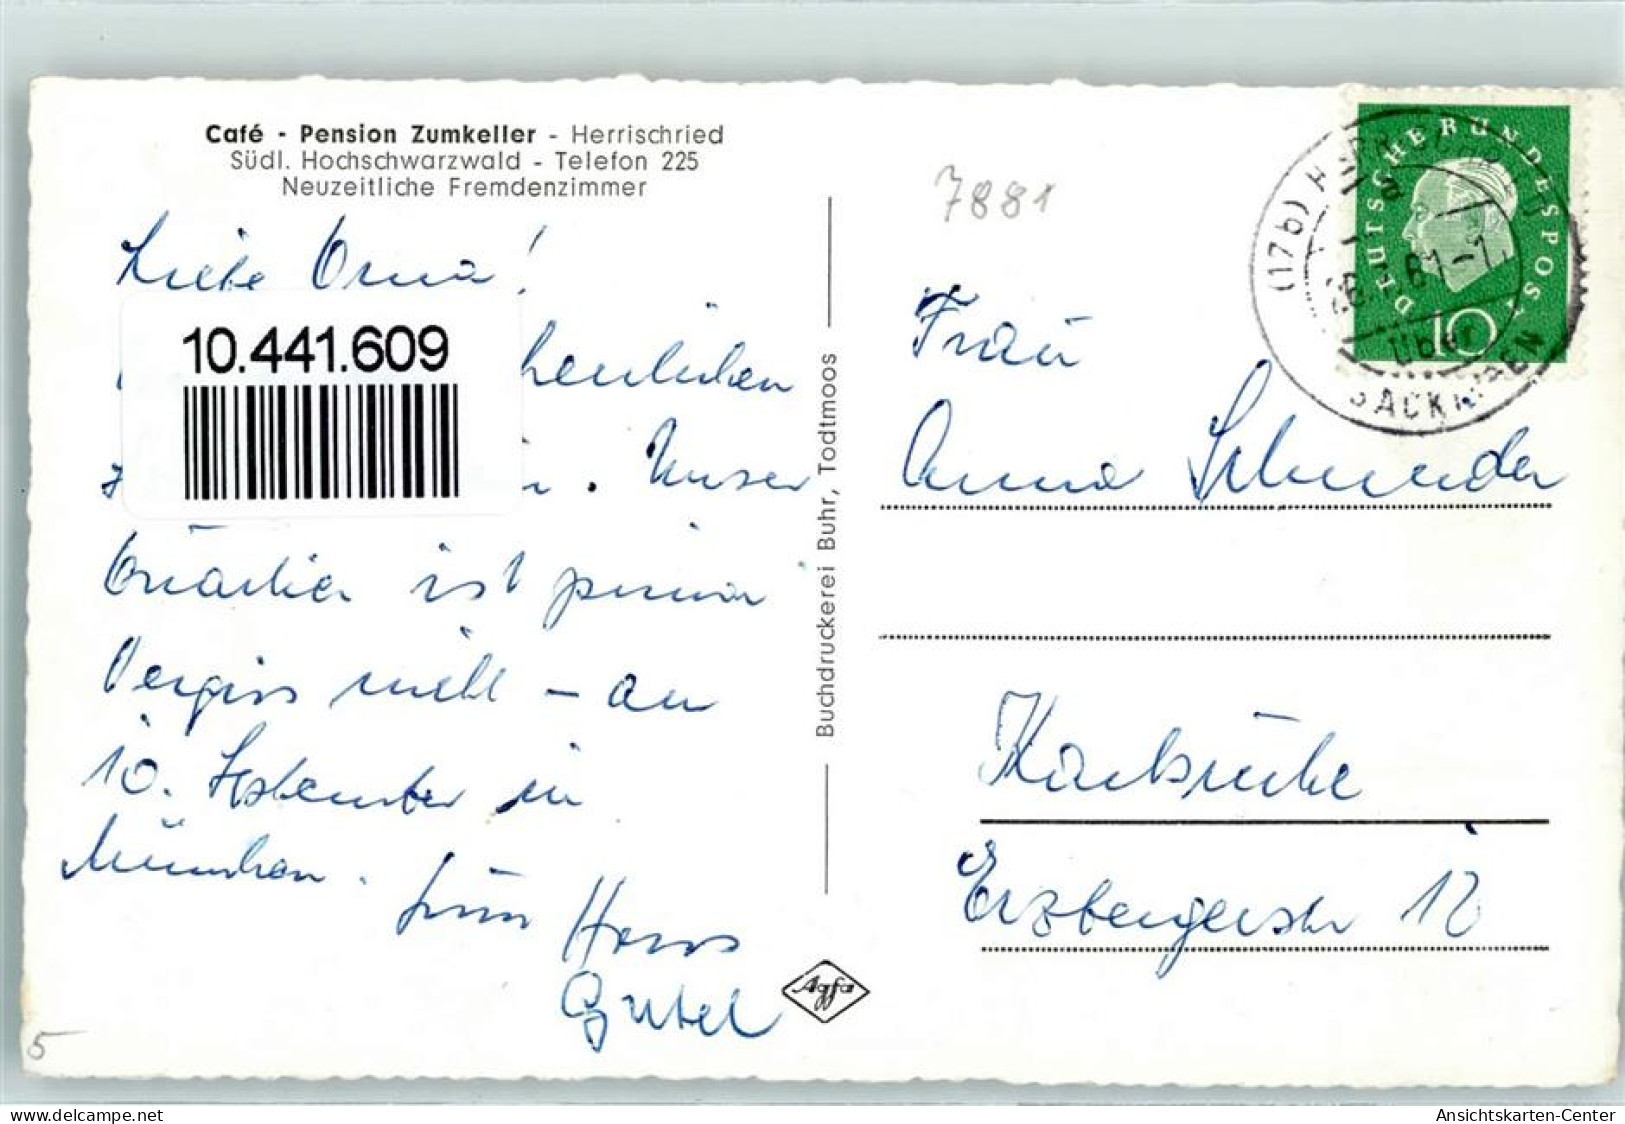 Café - Pension Zumkeller - Herrischried
Südl. Hochschwarzwald - Telefon 225
Neuzeitliche Fremdenzimmer
Liebe Oma!
10.441.609
henlichen
. Unser
Quartier ist prima
Vergiss nicht - am
10. September in
München.
Hans
Buchdruckerei Buhr, Todtmoos
Agfa
7881
DEUTSCHE BUNDESPOST
10
(17b)
über
SÄCKINGEN
Frau
Anna Schneider
Karlsruhe
Erzbergerstr 12
5
www.delcampe.net
Ansichtskarten-Center